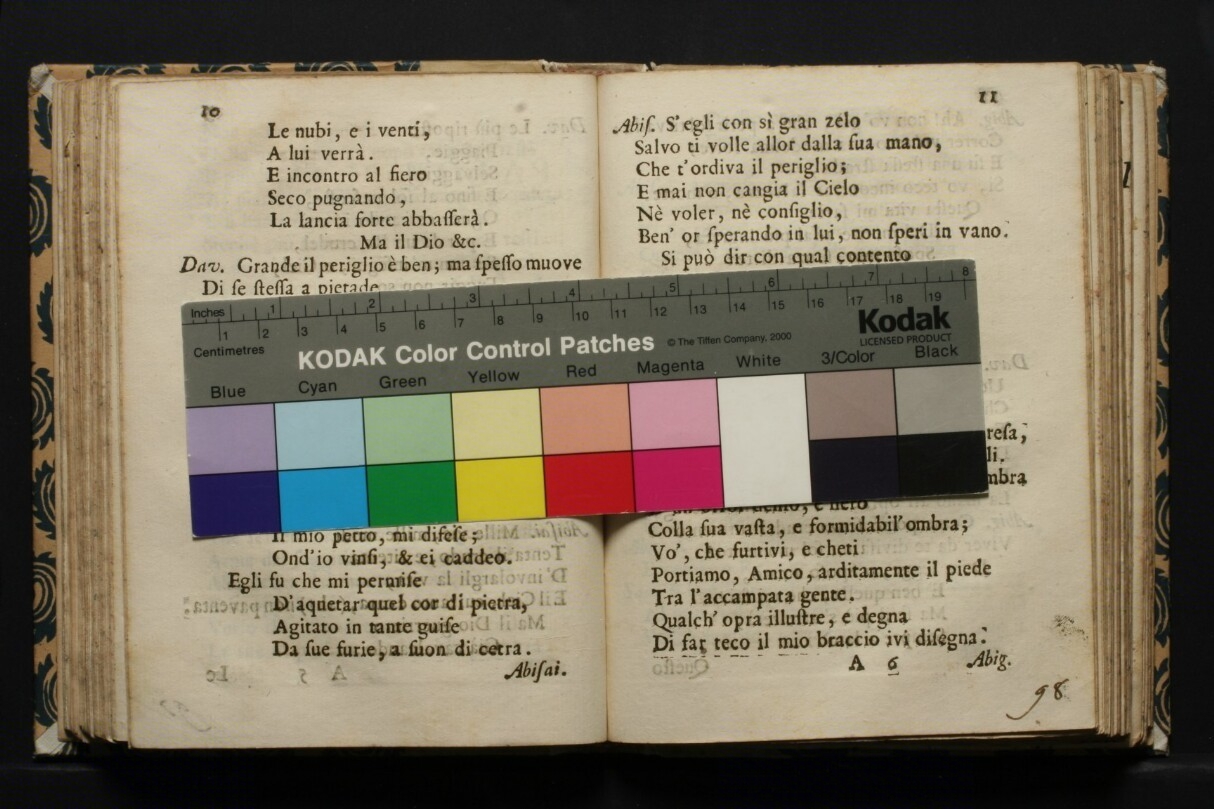 10
Le nubi, e i venti,
A lui verrà.
E incontro al fiero
Seco pugnando,
La lancia forte abbaſſerà.
Ma il Dio &c.
Dav. Grande il periglio è ben; ma ſpeſſo muove
Di ſe ſteſſa a pietade
Il mio petto, mi difeſe;
Ond'io vinſi, & ei caddeo.
Egli fu che mi permiſe
D'aquetar quel cor di pietra,
Agitato in tante guiſe
Da ſue furie, a ſuon di cetra.
A 5
Abiſai.
11
Abiſ. S'egli con sì gran zelo
Salvo ti volle allor dalla ſua mano,
Che t'ordiva il periglio;
E mai non cangia il Cielo
Nè voler, nè conſiglio,
Ben' or ſperando in lui, non ſperi in vano.
Si può dir con qual contento
reſa,
li.
mbra
e nero
Colla ſua vaſta, e formidabil' ombra;
Vo', che furtivi, e cheti
Portiamo, Amico, arditamente il piede
Tra l'accampata gente.
Qualch' opra illuſtre, e degna
Di far teco il mio braccio ivi diſegna.
A 6
Abig.
98
Inches 1 2 3 4 5 6 7 8
1 2 3 4 5 6 7 8 9 10 11 12 13 14 15 16 17 18 19
Centimetres
KODAK Color Control Patches © The Tiffen Company, 2000
Kodak
LICENSED PRODUCT
Blue Cyan Green Yellow Red Magenta White 3/Color Black